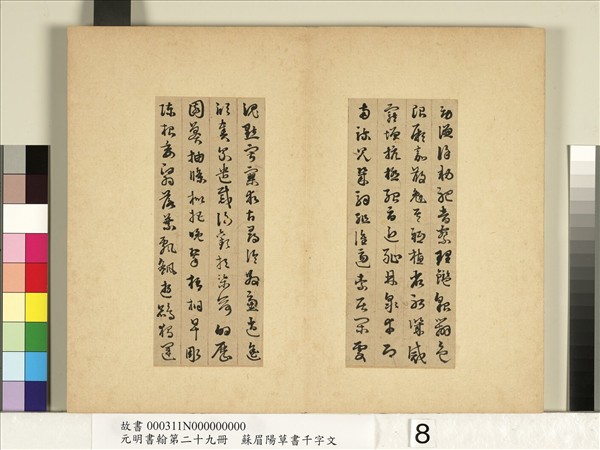 勞謙謹敕聆音察理鑑貌辨色
貽厥嘉猷勉其祗植省躬譏誡
寵增抗極殆辱近恥林皋幸即
兩疏見機解組誰逼索居閑處
沈默寂寥求古尋論散慮逍遙
欣奏累遣慼謝歡招渠荷的歷
園莽抽條枇杷晚翠梧桐早彫
陳根委翳落葉飄颻遊鵾獨運
故書 000311N000000000
元明書翰第二十九冊 蘇眉陽草書千字文
8